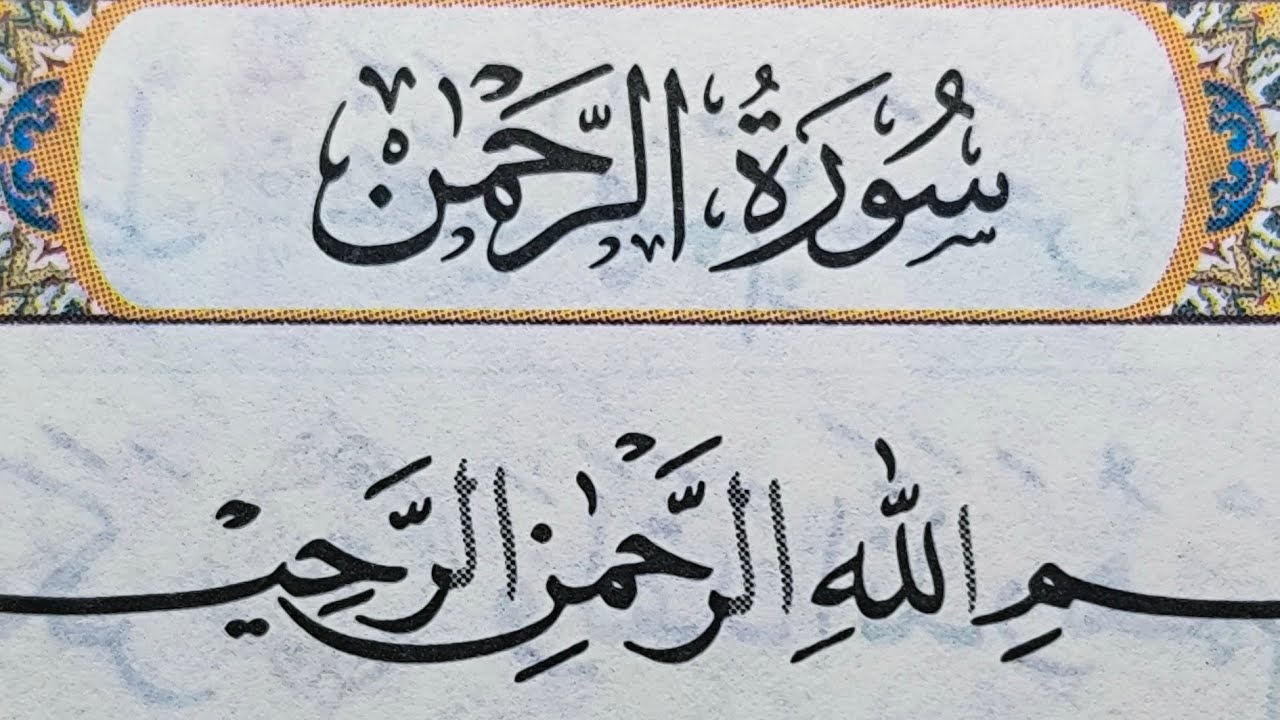 سُورَةُ الرَّحْمٰنْ
ـسمِ اللّٰهِ الرَّحْمٰنِ الرَّحِيـ